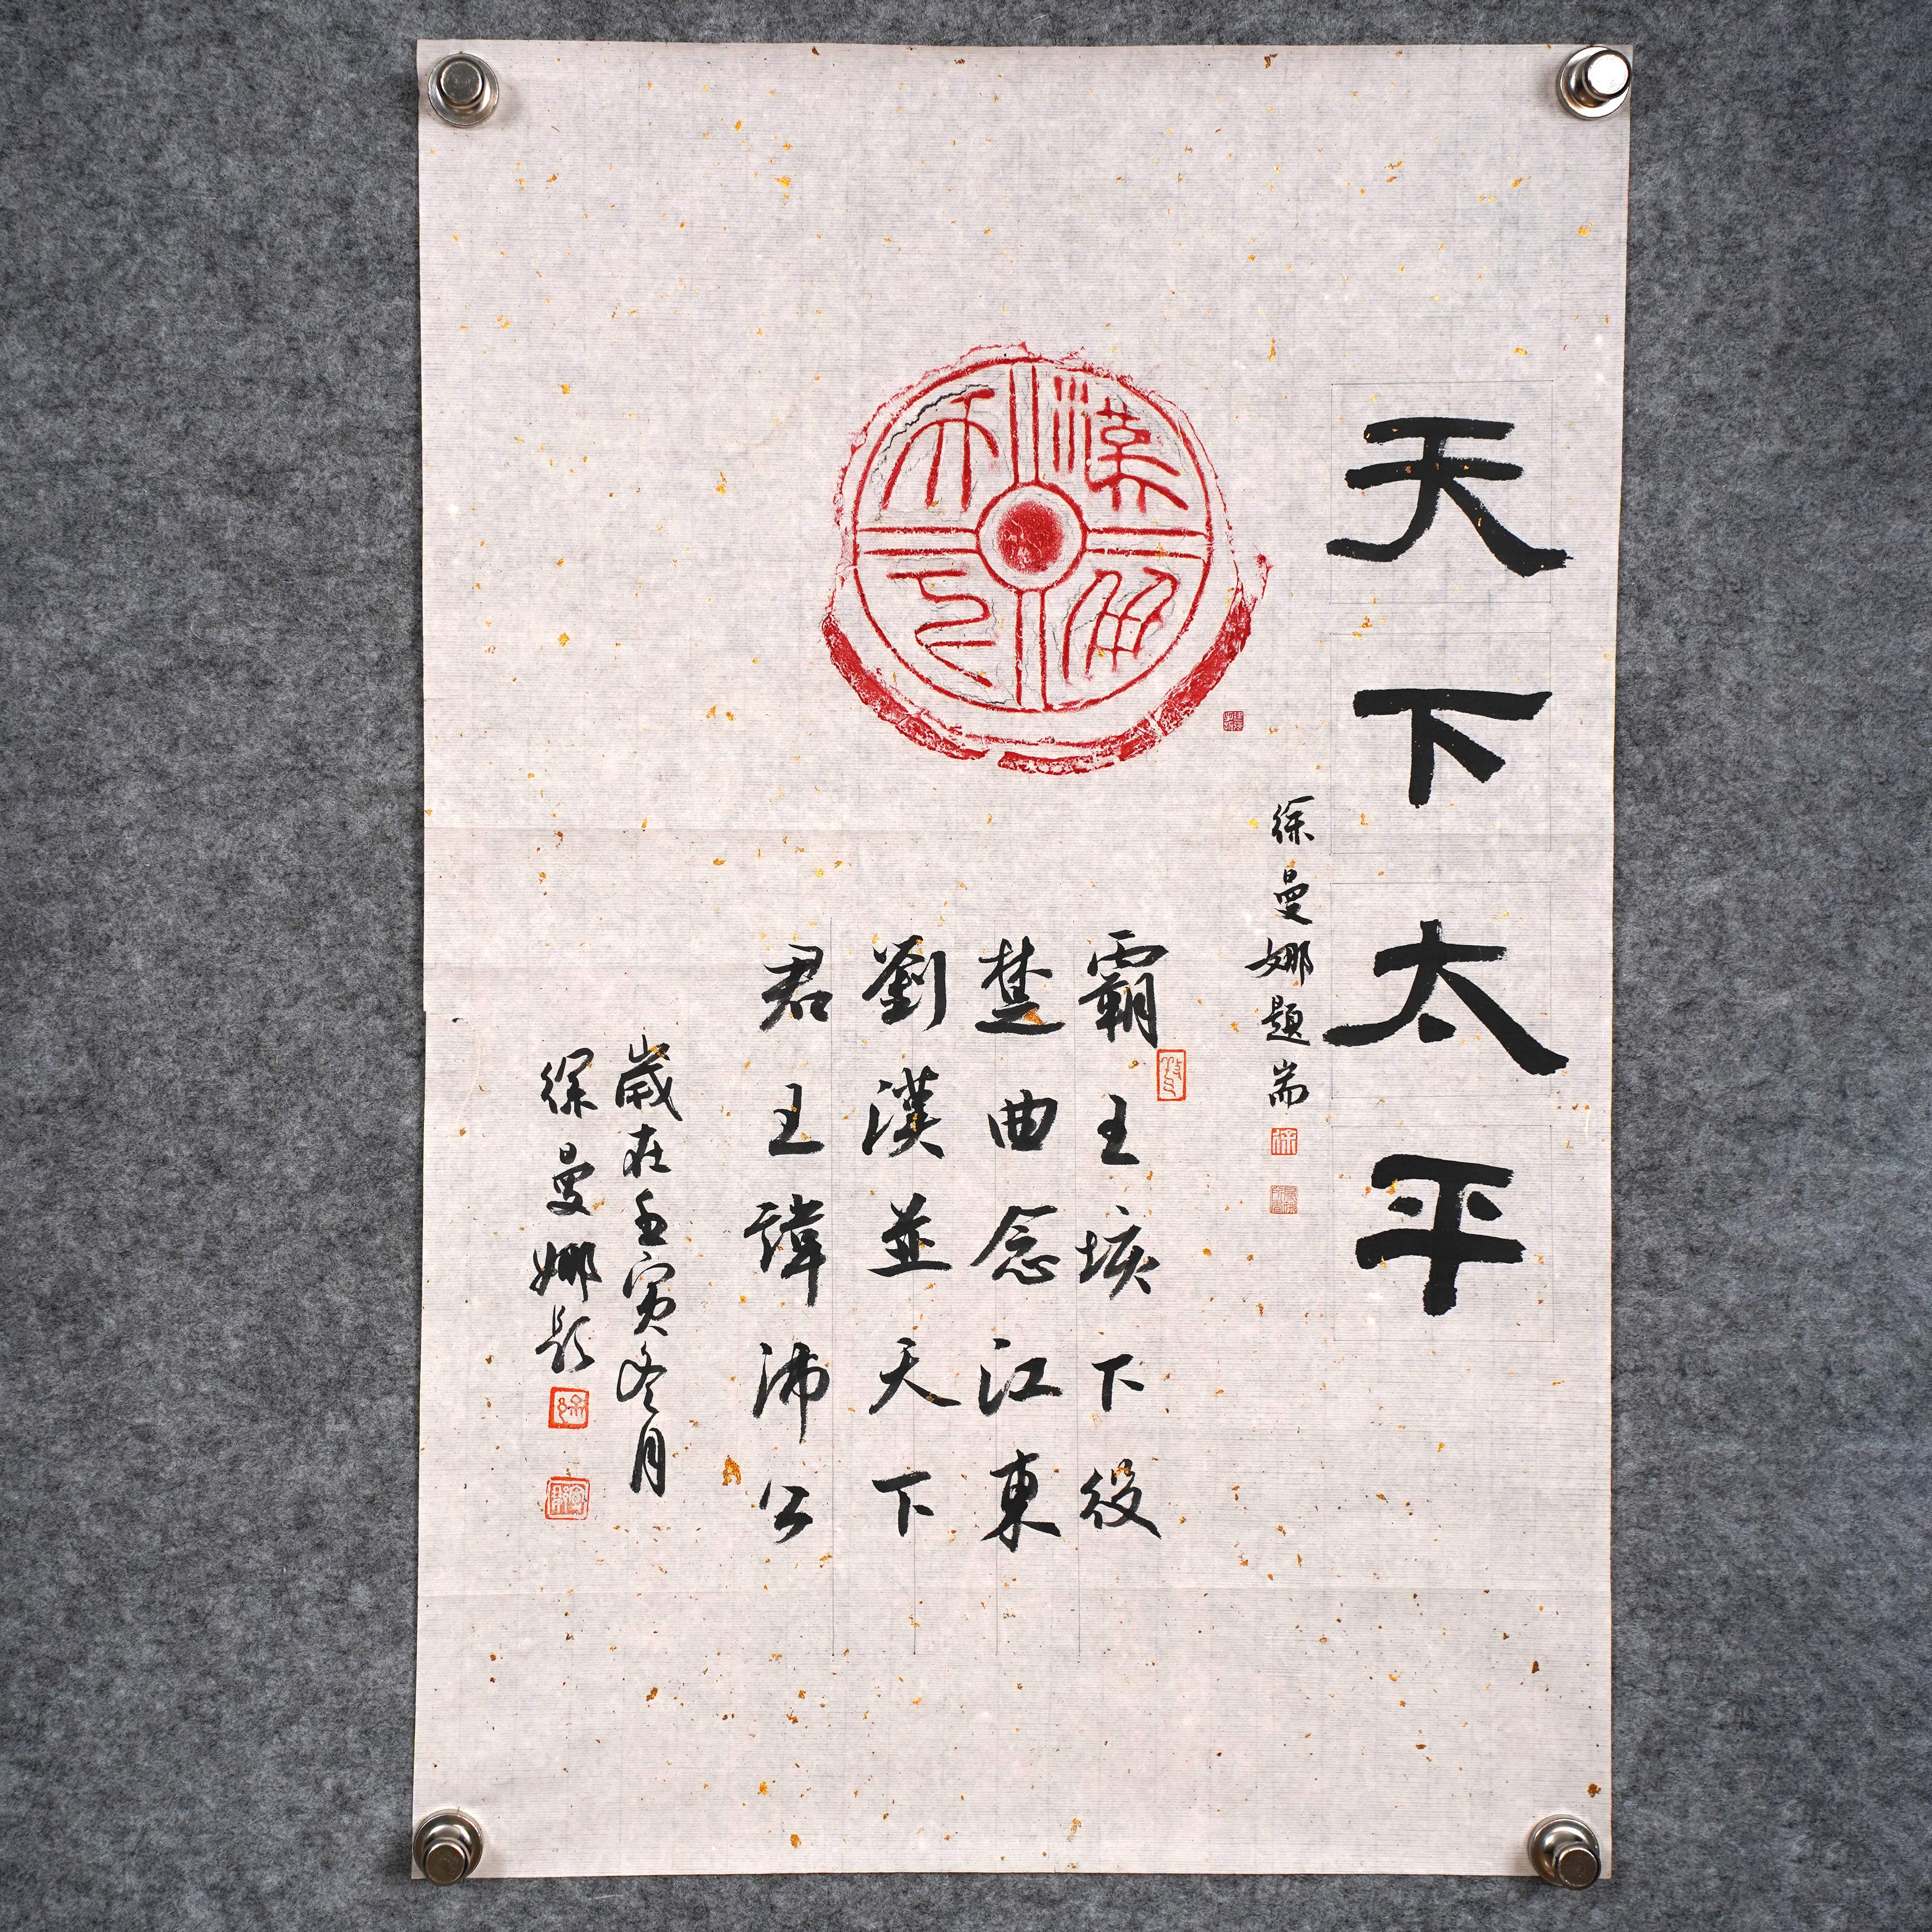 天下太平
徐曼娜題耑
漢并天下
霸王垓下役
楚曲念江東
劉漢並天下
君王諱沛公
歲在壬寅冬月
徐曼娜題